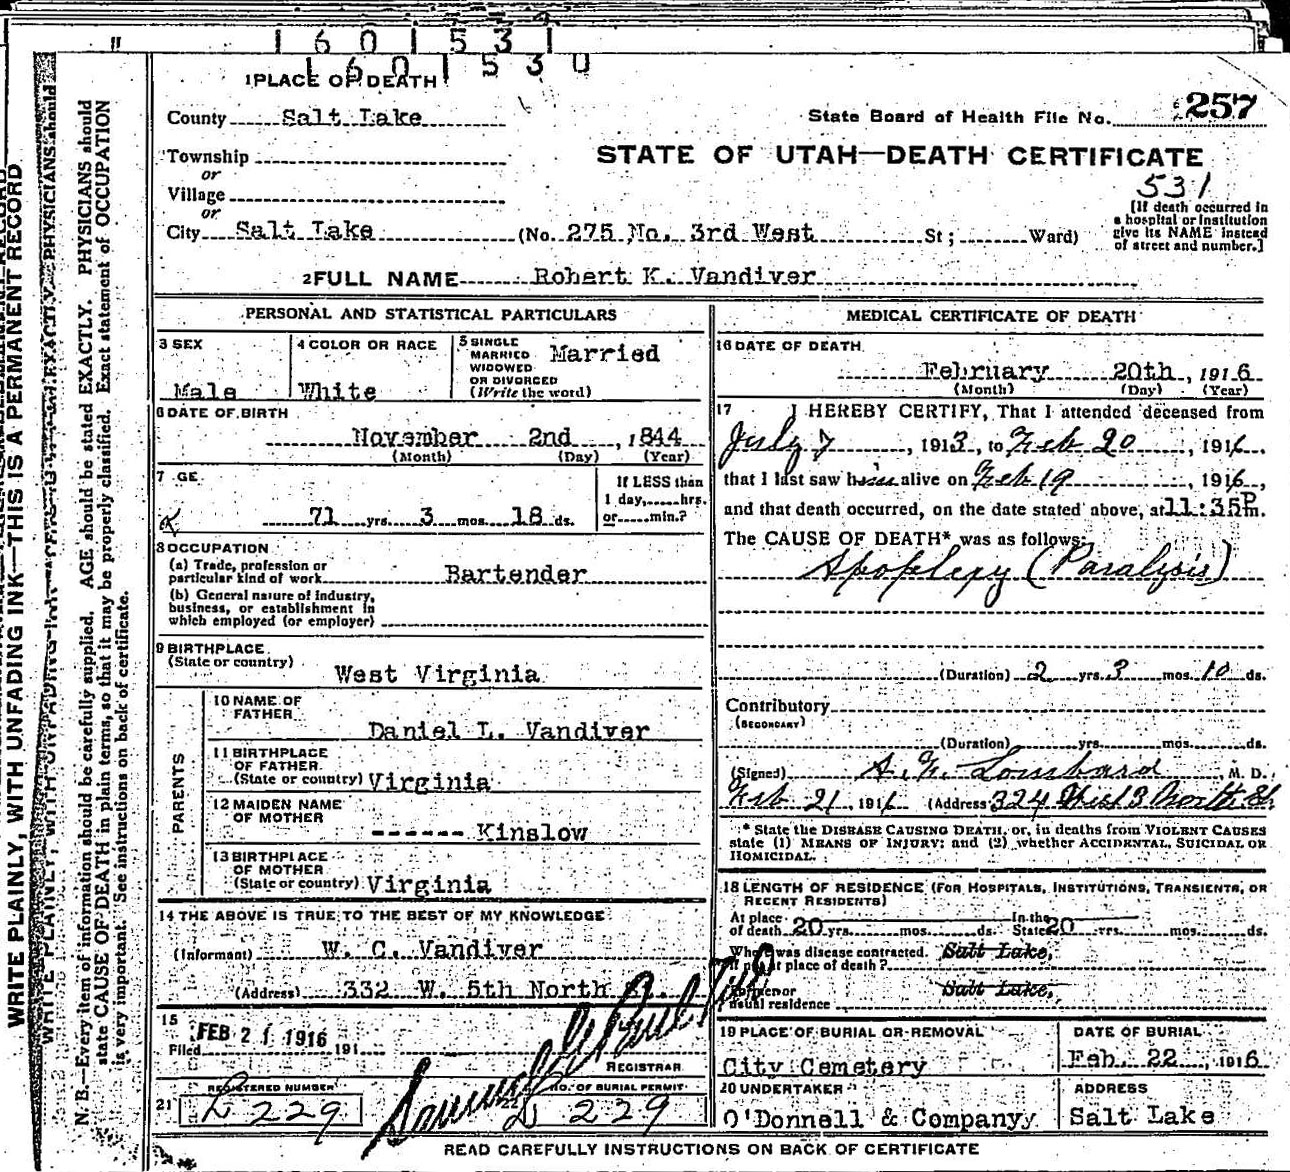 1601531
1601530
1 PLACE OF DEATH
County Salt Lake
State Board of Health File No. 257
Township
or
Village
or
STATE OF UTAH—DEATH CERTIFICATE
531
[If death occurred in
a hospital or institution
give its NAME instead
of street and number.]
City Salt Lake (No. 275 No. 3rd West St; Ward)
2 FULL NAME Robert K. Vandiver
PERSONAL AND STATISTICAL PARTICULARS
3 SEX
Male
4 COLOR OR RACE
White
5 SINGLE
MARRIED
WIDOWED
OR DIVORCED
(Write the word)
Married
6 DATE OF BIRTH
November 2nd, 1844
(Month) (Day) (Year)
7 GE
71 yrs. 3 mos. 18 ds.
If LESS than
1 day, hrs.
or min.?
8 OCCUPATION
(a) Trade, profession or
particular kind of work Bartender
(b) General nature of industry,
business, or establishment in
which employed (or employer)
9 BIRTHPLACE
(State or country) West Virginia
PARENTS
10 NAME OF
FATHER Daniel L. Vandiver
11 BIRTHPLACE
OF FATHER
(State or country) Virginia
12 MAIDEN NAME
OF MOTHER ------ Kinslow
13 BIRTHPLACE
OF MOTHER
(State or country) Virginia
14 THE ABOVE IS TRUE TO THE BEST OF MY KNOWLEDGE
(Informant) W. C. Vandiver
(Address) 332 W. 5th North
15
Filed FEB 21 1916 191
REGISTRAR
REGISTERED NUMBER
21 L 229
NO. OF BURIAL PERMIT
22 L 229
MEDICAL CERTIFICATE OF DEATH
16 DATE OF DEATH
February 20th, 1916
(Month) (Day) (Year)
17 I HEREBY CERTIFY, That I attended deceased from
July 7, 1913, to Feb 20, 1916,
that I last saw him alive on Feb 19, 1916,
and that death occurred, on the date stated above, at 11:35P m.
The CAUSE OF DEATH* was as follows:
Apoplexy (Paralysis)
(Duration) 2 yrs. 3 mos. 10 ds.
Contributory
(SECONDARY)
(Duration) yrs. mos. ds.
(Signed) Lombard, M. D.
Feb 21, 1916 (Address) 324 West 3 North St
* State the DISEASE CAUSING DEATH, or, in deaths from VIOLENT CAUSES
state (1) MEANS OF INJURY; and (2) whether ACCIDENTAL, SUICIDAL OR
HOMICIDAL.
18 LENGTH OF RESIDENCE (FOR HOSPITALS, INSTITUTIONS, TRANSIENTS, OR
RECENT RESIDENTS)
At place
of death 20 yrs. mos. ds.
In the
State 20 yrs. mos. ds.
Where was disease contracted,
if not at place of death? Salt Lake,
Former or
usual residence Salt Lake,
19 PLACE OF BURIAL OR REMOVAL
City Cemetery
DATE OF BURIAL
Feb. 22, 1916
20 UNDERTAKER
O'Donnell & Companyy
ADDRESS
Salt Lake
READ CAREFULLY INSTRUCTIONS ON BACK OF CERTIFICATE
WRITE PLAINLY, WITH UNFADING INK—THIS IS A PERMANENT RECORD
N. B.—Every item of information should be carefully supplied. AGE should be stated EXACTLY. PHYSICIANS should
state CAUSE OF DEATH in plain terms, so that it may be properly classified. Exact statement of OCCUPATION
is very important. See instructions on back of certificate.